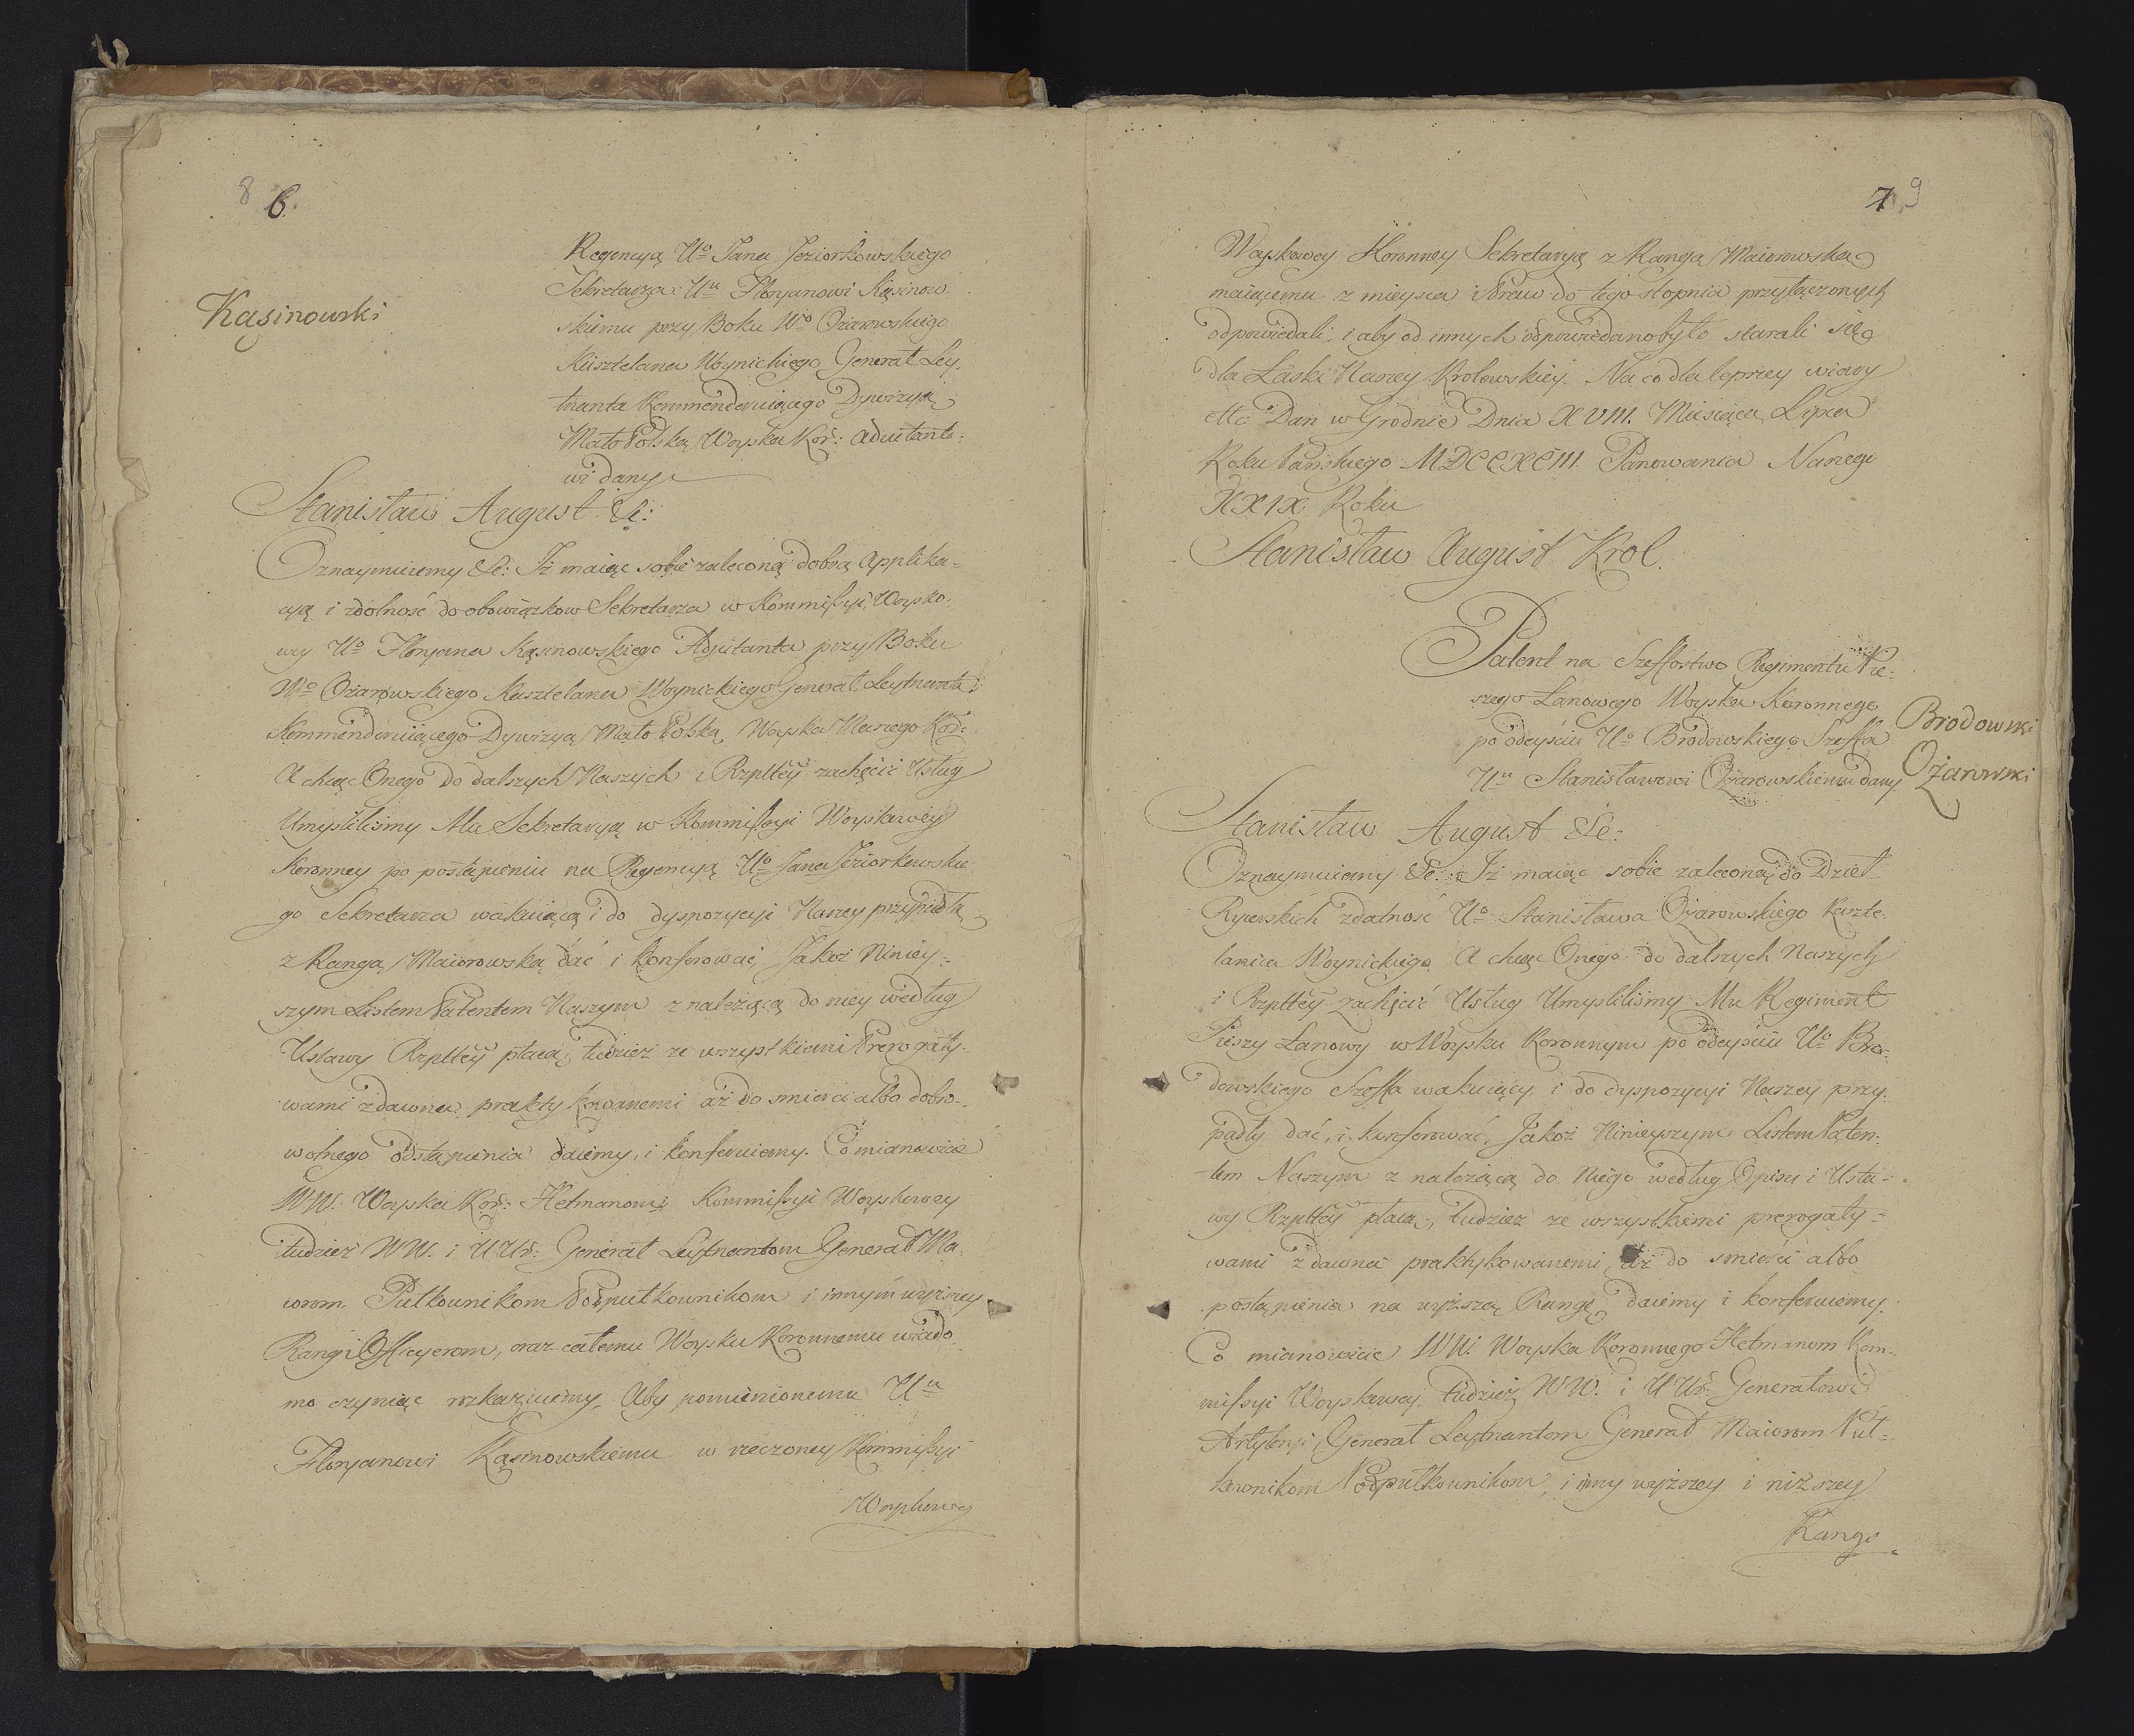 8 6.
Regencyą Uo Jana Jeziorkowskiego
Sekretarza Uu Floryanowi Kąsinow
Kąsinowski
skiemu przy Boku Wo Ożarowskiego
Kasztelana Woynickiego Generał Ley.
tnanta Kommenderuiącego Dywizyą
Mało Polską Woyska Kor: Adiutanto:
wi dany
Stanisław August &c:
Oznaymuiemy &c: Iż maiąc sobie zaleconą dobrą applika=
cyą i zdolność do obowiązkow Sekretarza w Kommissyi Woysko.
wey Uo Floryana Kąsinowskiego Adjutanta przy Boku
Wo Ożarowskiego Kasztelana Woynickiego Generał Leytnanta
Kommenderuiącego Dywizyą Mało Polską Woyska Naszego Kor:
A chcąc Onego do dalszych Naszych i Rzpltey zachęcić Usług
Umyśliliśmy Mu Sekretaryą w Kommissyi Woyskowey
Koronney po postąpieniu na Regencyą Uo Jana Jeziorkowskie
go Sekretarza wakuiącą i do dyspozycyi Naszey przypadłą
z Rangą Maiorowską dać i konferować Jakoż Niniey=
szym Listem Patentem Naszym z należącą do niey według
Ustawy Rzpltey płacą, tudzież ze wszystkiemi Prerogaty-
wami zdawna praktykowanemi aż do smierci albo dobro-
wolnego odstąpienia daiemy, i konferuiemy. Co mianowicie
WW. Woyska Kor: Hetmanom, Kommissyi Woyskowey
tudzież WW. i UUr: Generał Leytnantom Generał Ma-
iorom Pułkownikom Podpułkownikom i innym wyższey
Rangi Officyerom, oraz całemu Woysku Koronnemu wiado
mo czyniąc rozkazuiemy, Aby pomienionemu Uu
Floryanowi Kąsinowskiemu w rzeczoney Kommissyi
Woyskowey
7 9
Woyskowey Koronney Sekretaryą z Rangą Maiorowską
maiącemu z mieysca i Praw do tego stopnia przyłączonych
odpowiedali, i aby od innych odpowiedano było starali się
dla Łaski Naszey Krolewskiey. Na co dla lepszey wiary
ettc Dan w Grodnie Dnia XVIII. Miesiąca Lipca
Roku Pańskiego MDCCXCIII. Panowania Naszego
XXIX Roku
Stanisław August Krol.
Patent na Szeffostwo Regimentu Pie-
szego Łanowego Woyska Koronnego
po odeyściu Uo Brodowskiego Szeffa
Uu Stanisławowi Ożarowskiemu dany
Brodowski
Ożarowski
Stanisław August &c:
Oznaymuiemy &c: Iż maiąc sobie zaleconą do Dzieł
Rycerskich zdatność Uo Stanisława Ożarowskiego Kaszte-
lanica Woynickiego A chcąc Onego do dalszych Naszych
i Rzpltey zachęcić Usług Umyśliliśmy Mu Regiment
Pieszy Łanowy w Woysku Koronnym po odeyściu Uo Bro-
dowskiego Szeffa wakuiący, i do dyspozycyi Naszey przy.
padły dać, i konferować, Jakoż Ninieyszym Listem Paten-
tem Naszym z należącą do Niego według Opisu i Usta-
wy Rzpltey płacą, tudzież ze wszystkiemi prerogaty=
wami zdawna praktykowanemi, aż do smierci albo
postąpienia na wyższą Rangę daiemy i konferuiemy.
Co mianowicie WW. Woyska Koronnego Hetmanom Kom-
missyi Woyskowey, tudzież WW. i UUr: Generałowi
Artyleryi, Generał Leytnantom Generał Maiorom Puł=
kownikom Podpułkownikom, i inny wyższey i niższey
Rangi